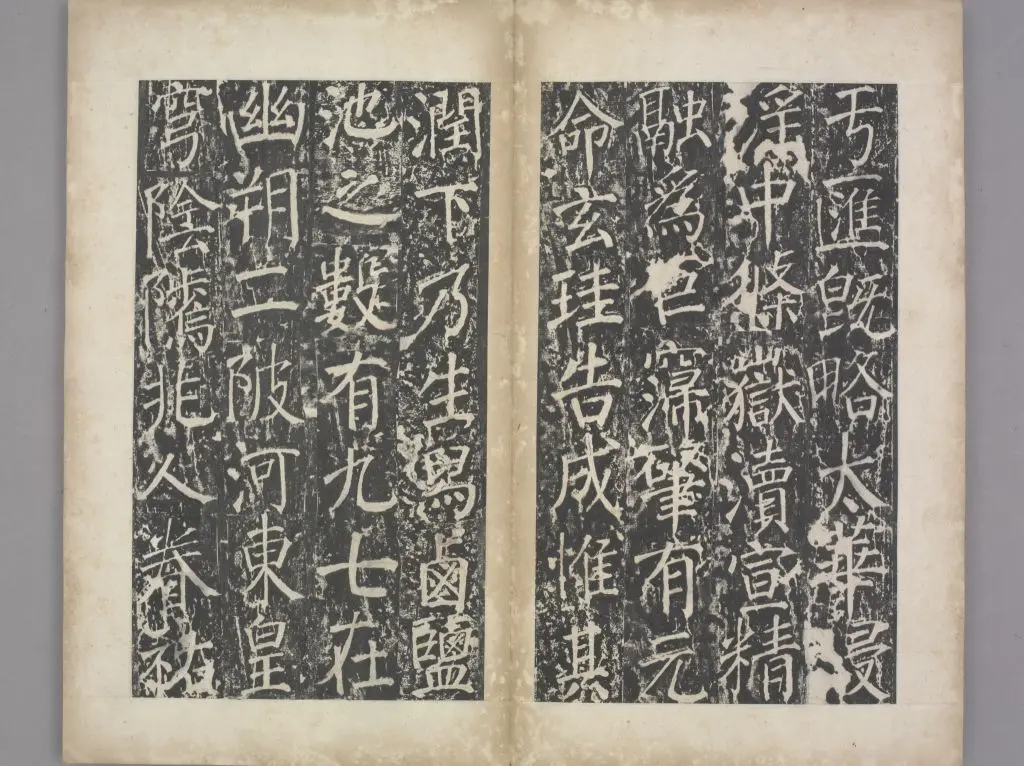 于匯既略太華浸
淫中條嶽瀆宣精
融爲巨寖肇有元
命玄珪告成惟其
潤下乃生舄鹵鹽
池之數有九七在
幽朔二陂河東皇
穹陰騭兆人眷祐